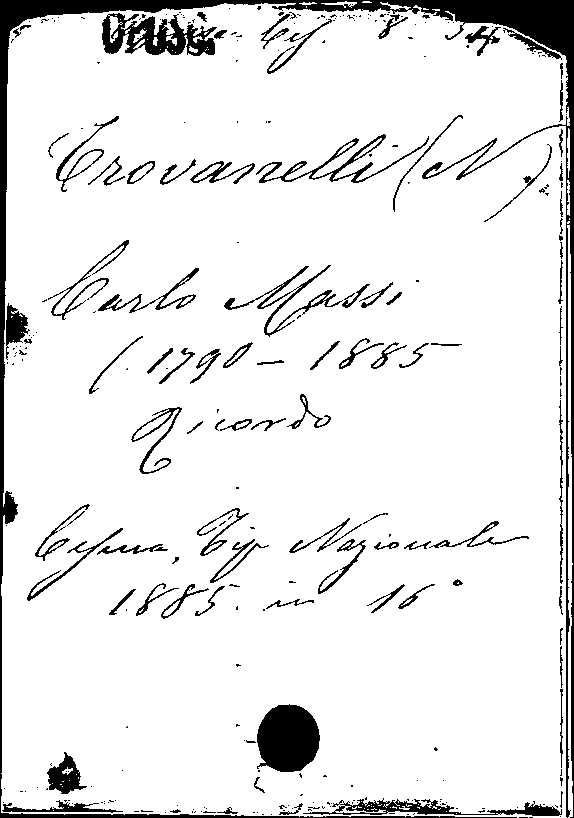 OPUSC. Ces. 8. 54
Trovanelli (N.)
Carlo Massi
(1790 - 1885
Ricordo
Cesena, Tip Nazionale
1885. in 16°